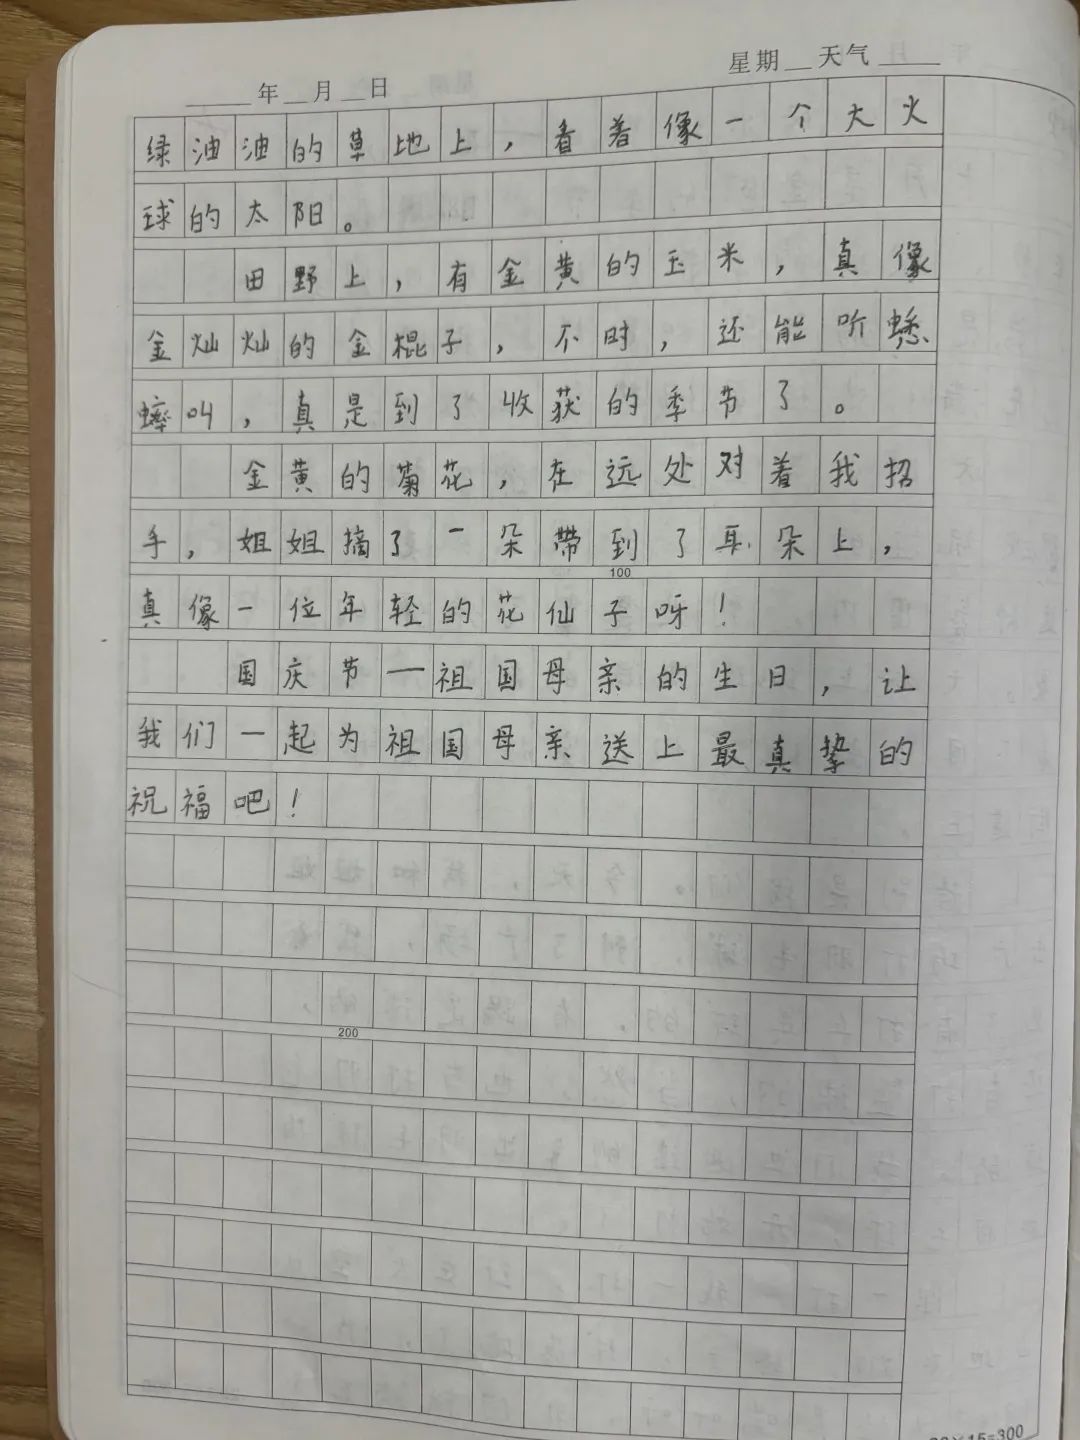 ____年__月__日
星期__天气____
绿油油的草地上，看着像一个大火
球的太阳。
田野上，有金黄的玉米，真像
金灿灿的金棍子，不时，还能听蟋
蟀叫，真是到了收获的季节了。
金黄的菊花，在远处对着我招
手，姐姐摘了一朵带到了耳朵上，
100
真像一位年轻的花仙子呀！
国庆节一祖国母亲的生日，让
我们一起为祖国母亲送上最真挚的
祝福吧！
200
15=300